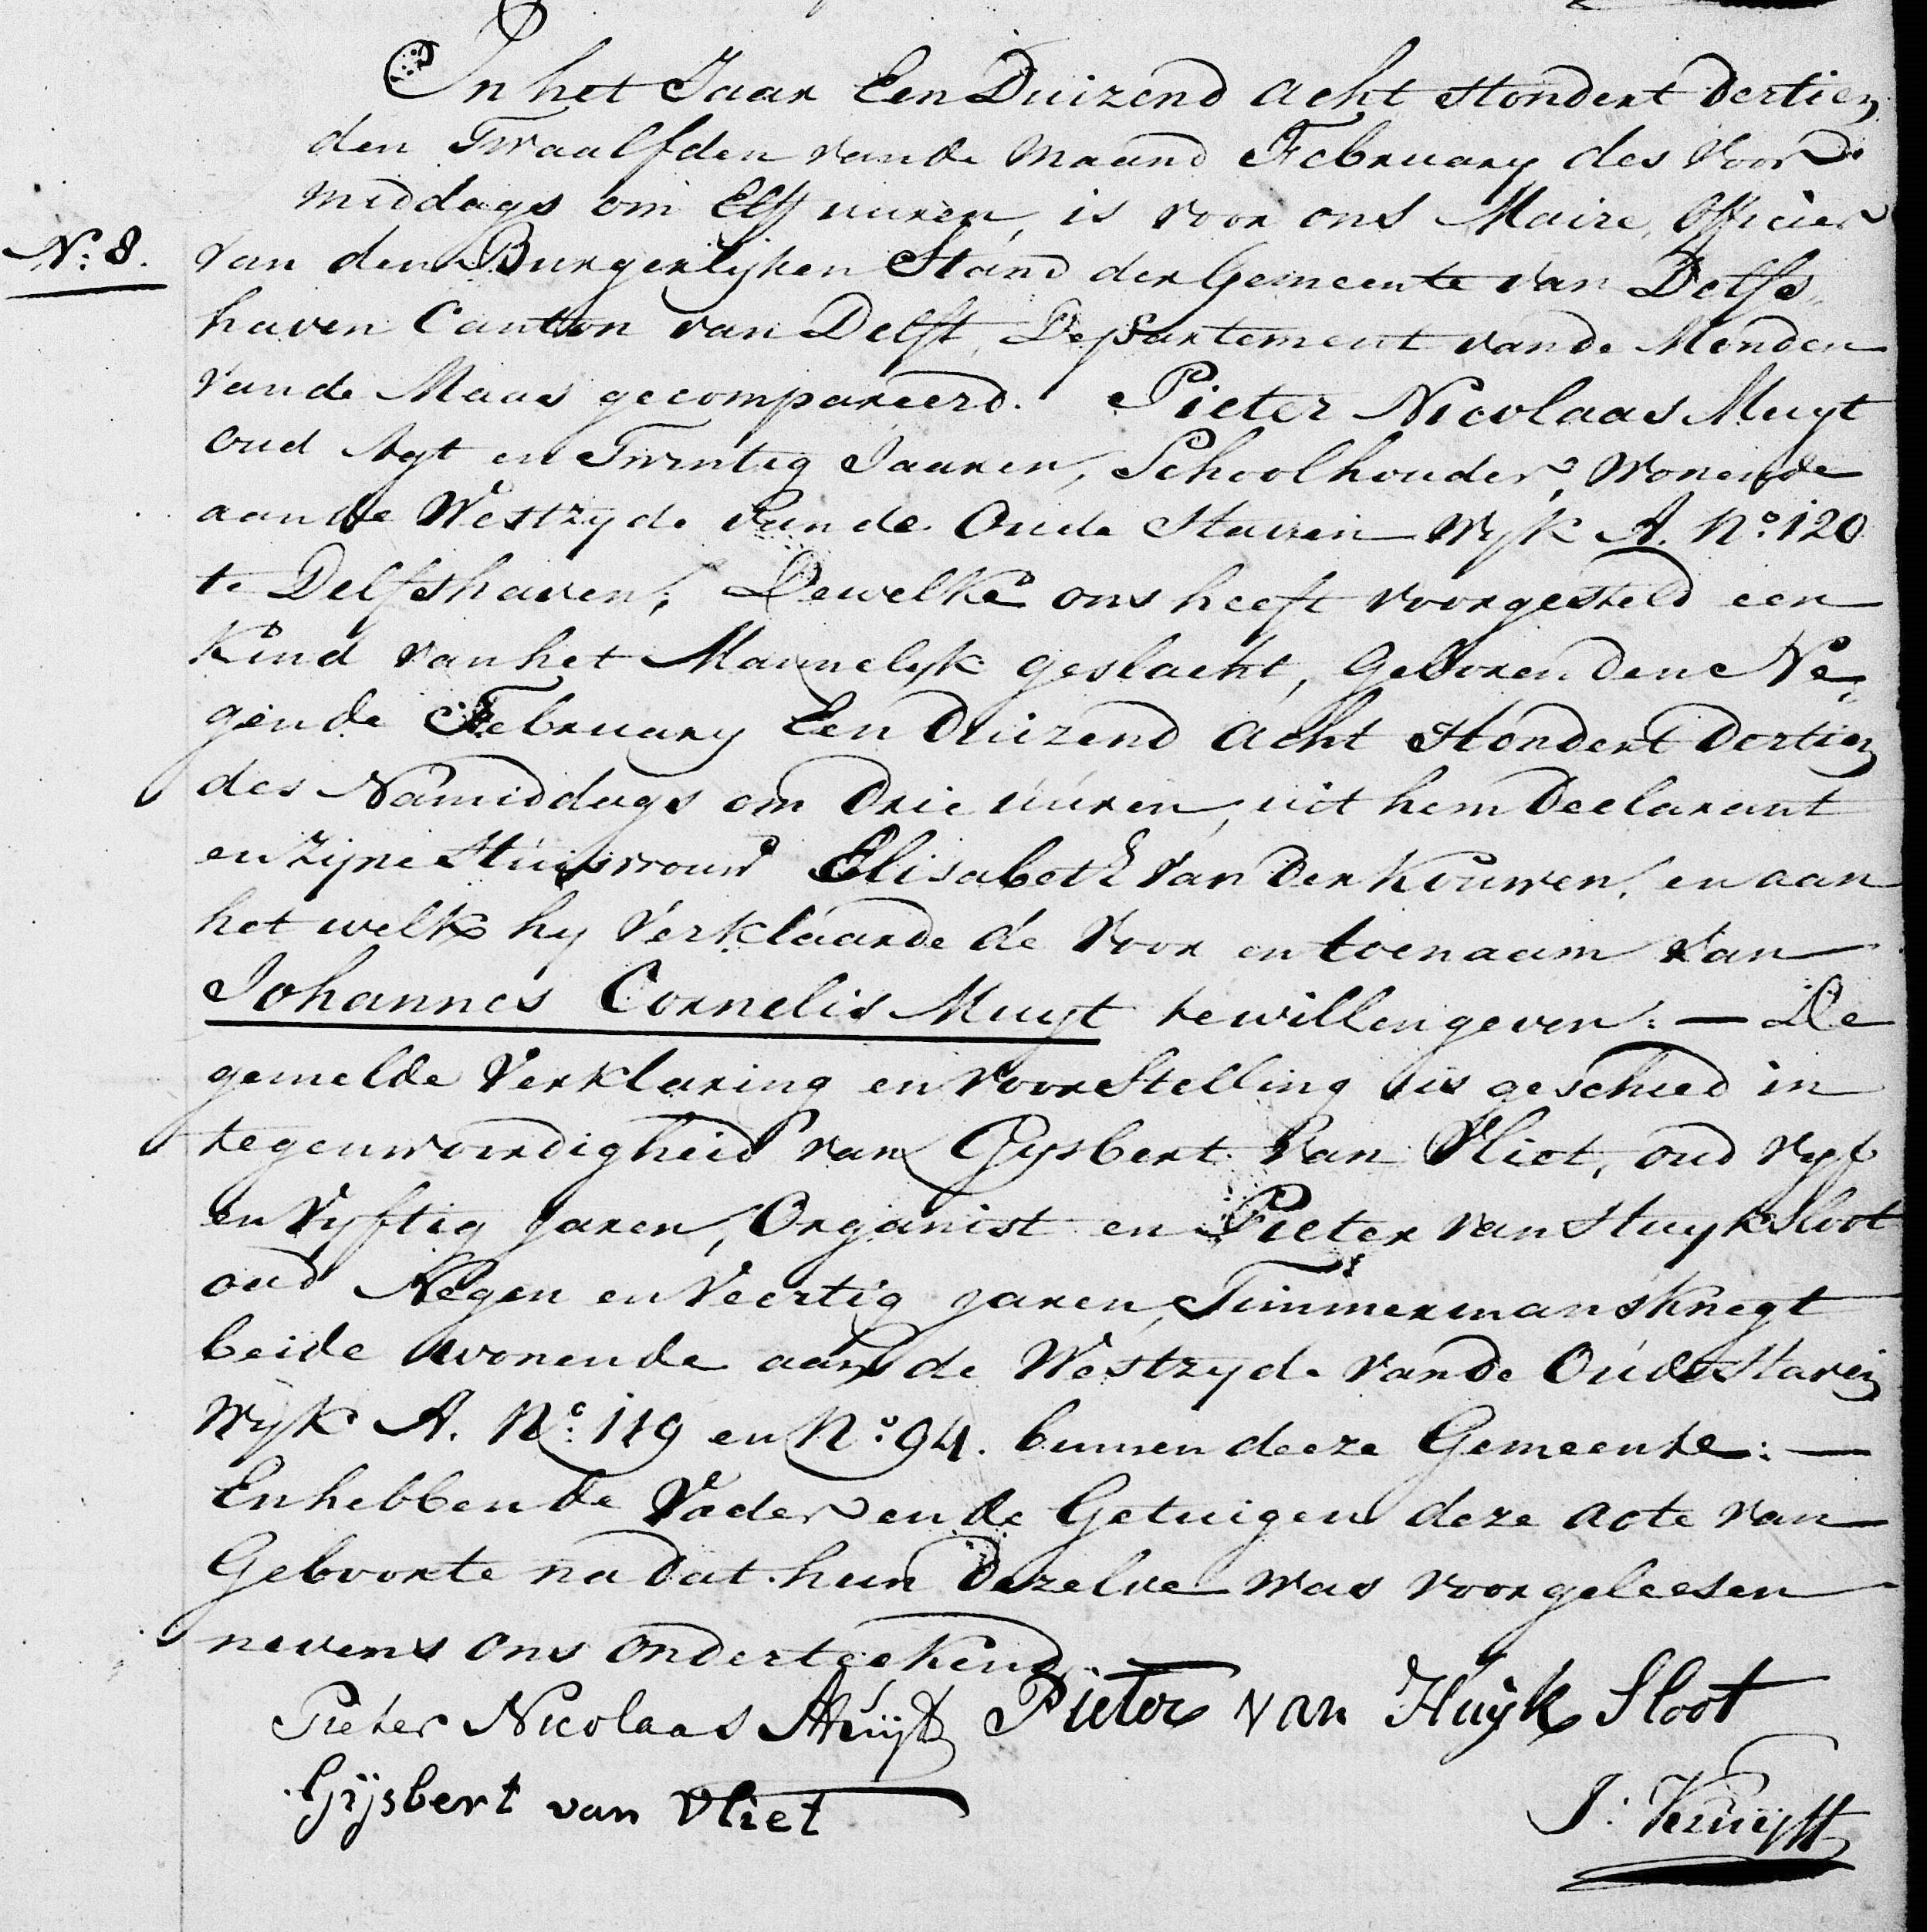 In het Jaar Een Duizend acht Hondert Dertien
den Twaalfden vande Maand February des Voor
middags om Elf uuren, is voor ons Maire, Officier
N:8. van den Burgerlijken Stand der Gemeente van Delfs
haven Canton van Delft, Departement vande Monden
vande Maas gecompareerd. Pieter Nicolaas Muyt
oud Agt en Twintig Jaaren, Schoolhouder, Wonende
aan de Westzyde vande Oude Haven Wyk A. No: 120
te Delfshaven; Dewelke ons heeft voorgesteld een
Kind van het Mannelyk geslacht, Geboren den Ne=
gende February Een Duizend Acht Hondert Dertien
des Namiddags om Drie uuren, uit hem Declarant
en Zijne Huisvrouw Elisabeth van der Kouwen, en aan
het welk hy Verklaarde de Voor en toenaam van
Johannes Cornelis Muyt te willen geven: — De
gemelde Verklaring en voorstelling is geschied in
tegenwoordigheid van Gysbert van Vliet, oud Vyf
en Vyftig Jaren, Organist en Pieter van Huyksloot
oud Negen en Veertig Jaren, Timmermansknegt
beide wonende aan de Westzyde vande Oude Haven
Wyk A. No: 119 en No: 94. binnen deeze Gemeente: —
En hebben de Vader en de Getuigen deze acte van
Geboorte na dat hun Dezelve was voorgeleesen
nevens ons onderteekend
Pieter Nicolaas Muijt Pieter van Huijk Sloot
Gijsbert van Vliet